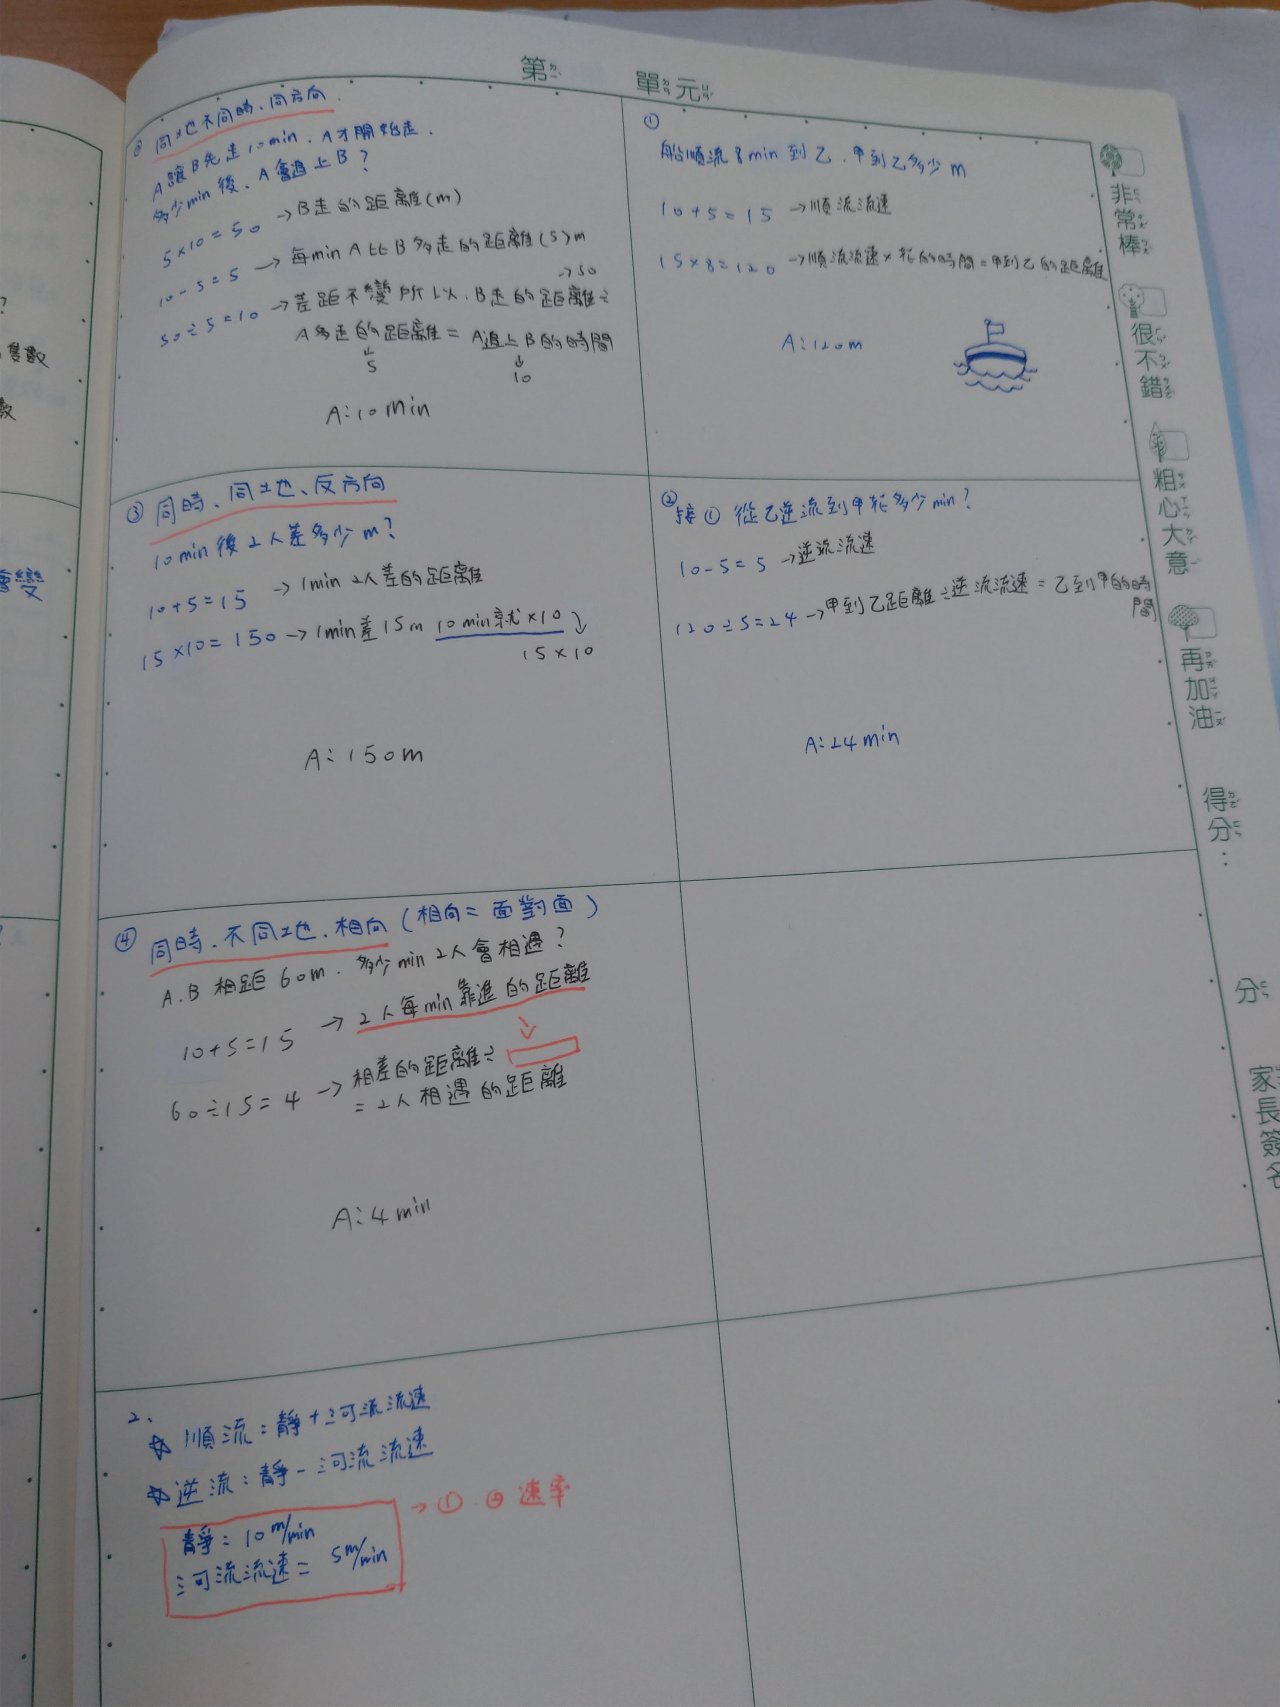 第 單元
② 同地不同時、同方向
A讓B先走10min,A才開始走.
多少min後、A會追上B?
5×10=50 →B走的距離(m)
10-5=5 →每min A比B多走的距離(5)m
→50
50÷5=10 →差距不變所以、B走的距離÷
A多走的距離=A追上B的時間
5
10
A:10min
③ 同時、同地、反方向
10min後2人差多少m?
10+5=15 →1min 2人差的距離
15×10=150→1min差15m 10min就×10
15×10
A:150m
④ 同時、不同地、相向(相向=面對面)
A.B相距60m、多少min2人會相遇?
10+5=15 →2人每min靠進的距離
60÷15=4 →相差的距離÷
=2人相遇的距離
A:4min
2、
☆順流:靜+河流流速
☆逆流:靜-河流流速
靜=10m/min
河流流速= 5m/min
→①.② 速率
①
船順流8min到乙,甲到乙多少m
10+5=15 →順流流速
15×8=120 →順流流速×花的時間=甲到乙的距離
A:120m
② 接①從乙逆流到甲花多少min?
10-5=5 →逆流流速
120÷5=24→甲到乙距離÷逆流流速=乙到甲的時
間
A:24min
非常棒
很不錯
粗心大意
再加油
得分:
分
家長簽名
?
隻數
數
會變
?